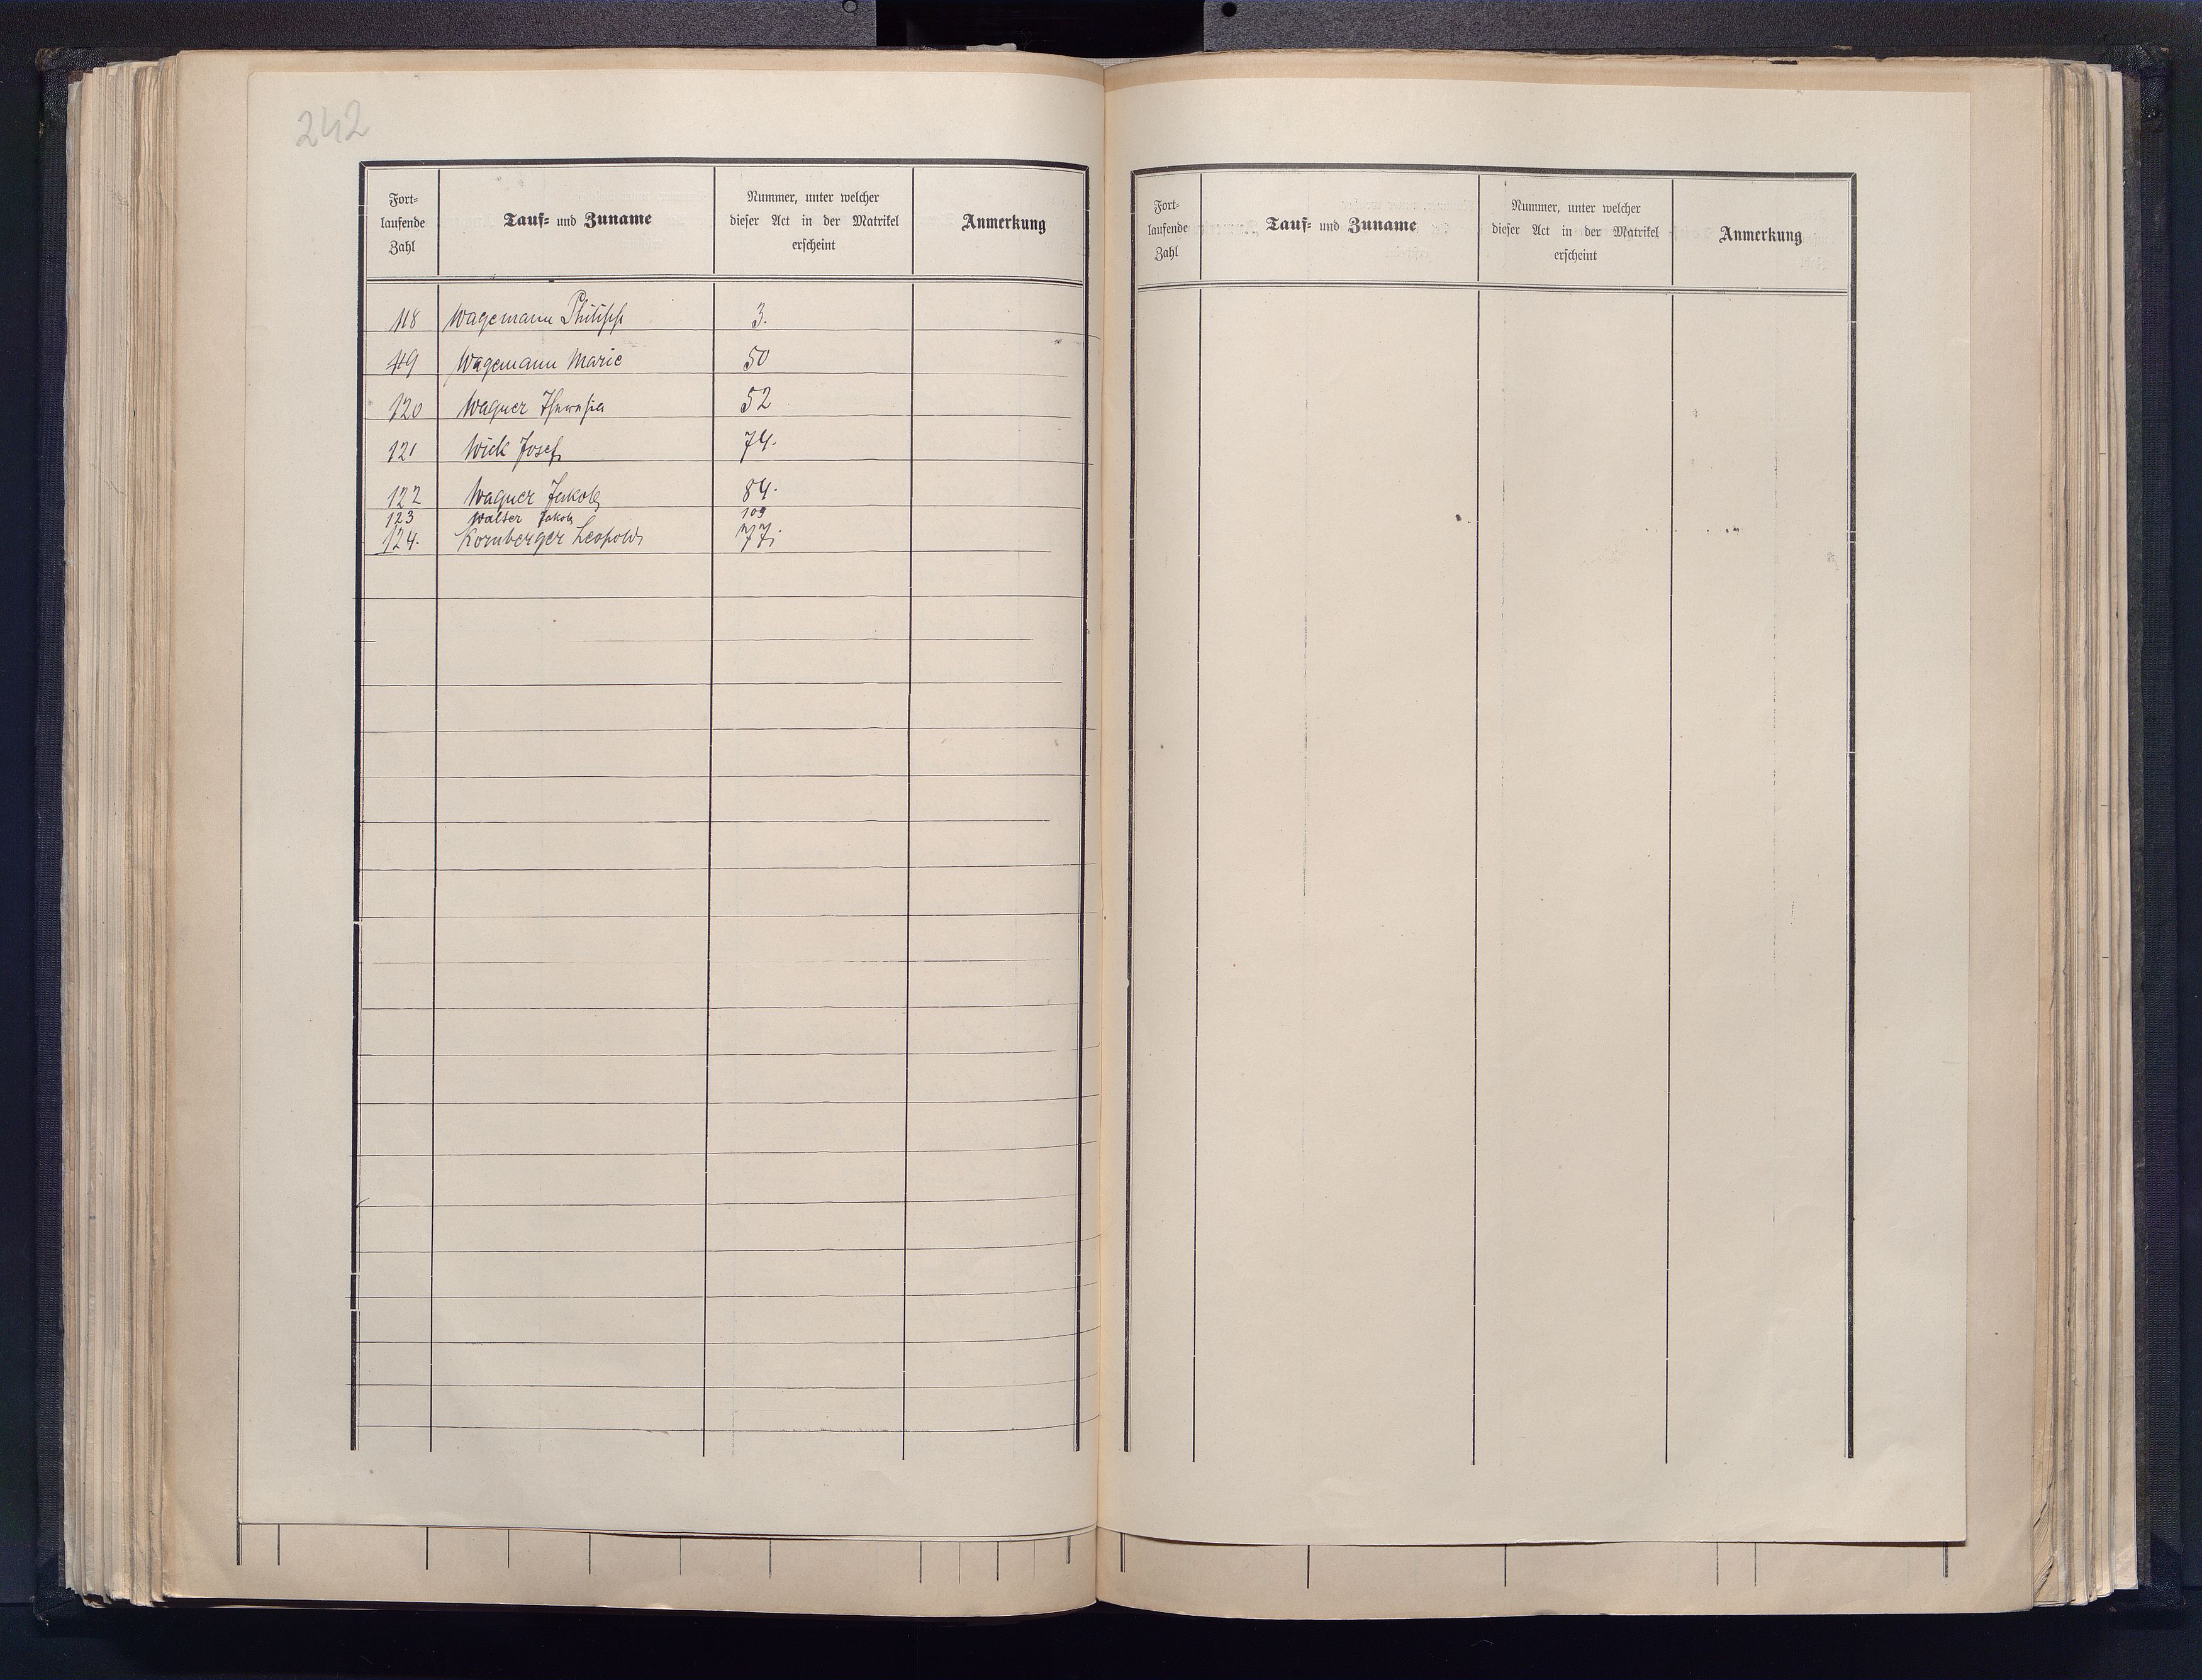 242
Fort-
laufende
Zahl
Tauf- und Zuname
Nummer, unter welcher
dieser Act in der Matrikel
erscheint
Anmerkung
118 Wagemann Philipp 3.
119 Wagemann Marie 50
120 Wagner Theresia 52
121 Wick Josef 74.
122 Wagner Jakob 84.
123 Walser Jakob 109
124. Kornberger Leopold 77.
Fort-
laufende
Zahl
Tauf- und Zuname
Nummer, unter welcher
dieser Act in der Matrikel
erscheint
Anmerkung